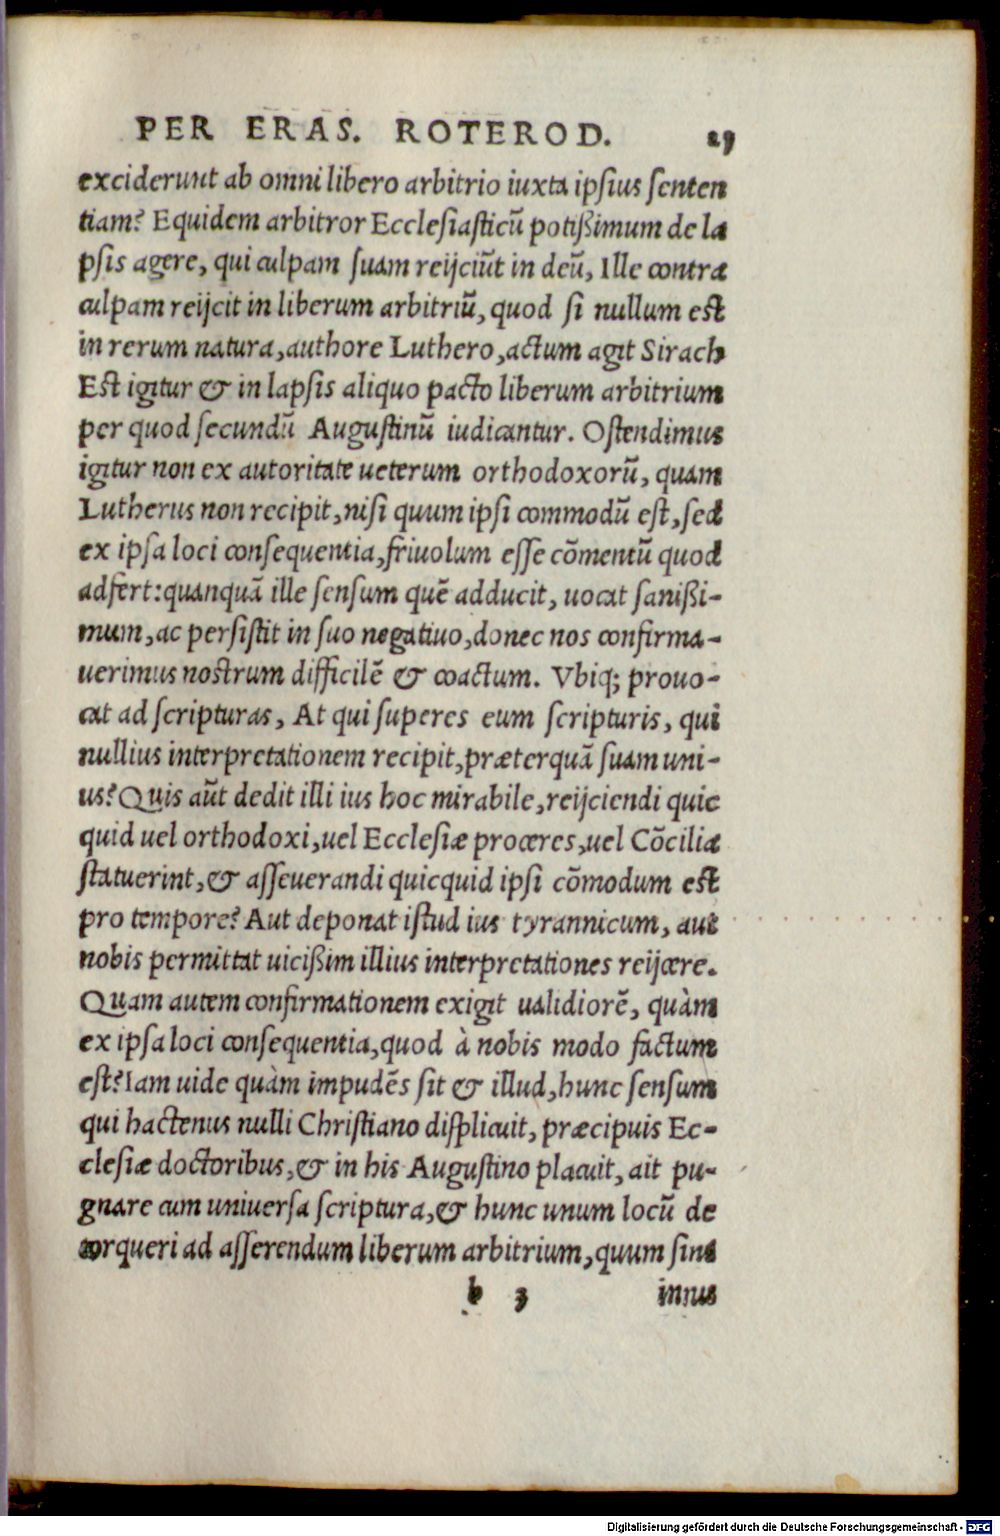 PER ERAS. ROTEROD. 29
exciderunt ab omni libero arbitrio iuxta ipsius senten
tiam? Equidem arbitror Ecclesiasticū potißimum de la
psis agere, qui culpam suam reijciūt in deū, Ille contra
culpam reijcit in liberum arbitriū, quod si nullum est
in rerum natura, authore Luthero, actum agit Sirach
Est igitur & in lapsis aliquo pacto liberum arbitrium
per quod secundū Augustinū iudicantur. Ostendimus
igitur non ex autoritate ueterum orthodoxorū, quam
Lutherus non recipit, nisi quum ipsi commodū est, sed
ex ipsa loci consequentia, friuolum esse cōmentū quod
adfert: quanquā ille sensum quē adducit, uocat sanißi-
mum, ac persistit in suo negatiuo, donec nos confirma-
uerimus nostrum difficilē & coactum. Vbiq; prouo-
cat ad scripturas, At qui superes eum scripturis, qui
nullius interpretationem recipit, præterquā suam uni-
us? Quis aūt dedit illi ius hoc mirabile, reijciendi quic
quid uel orthodoxi, uel Ecclesiæ proceres, uel Cōcilia
statuerint, & asseuerandi quicquid ipsi cōmodum est
pro tempore? Aut deponat istud ius tyrannicum, aut
nobis permittat uicißim illius interpretationes reijcere.
Quam autem confirmationem exigit ualidiorē, quàm
ex ipsa loci consequentia, quod à nobis modo factum
est? Iam uide quàm impudēs sit & illud, hunc sensum
qui hactenus nulli Christiano displicuit, præcipuis Ec-
clesiæ doctoribus, & in his Augustino placuit, ait pu-
gnare cum uniuersa scriptura, & hunc unum locū de
torqueri ad asserendum liberum arbitrium, quum sint
b 3 innu
Digitalisierung gefördert durch die Deutsche Forschungsgemeinschaft - DFG